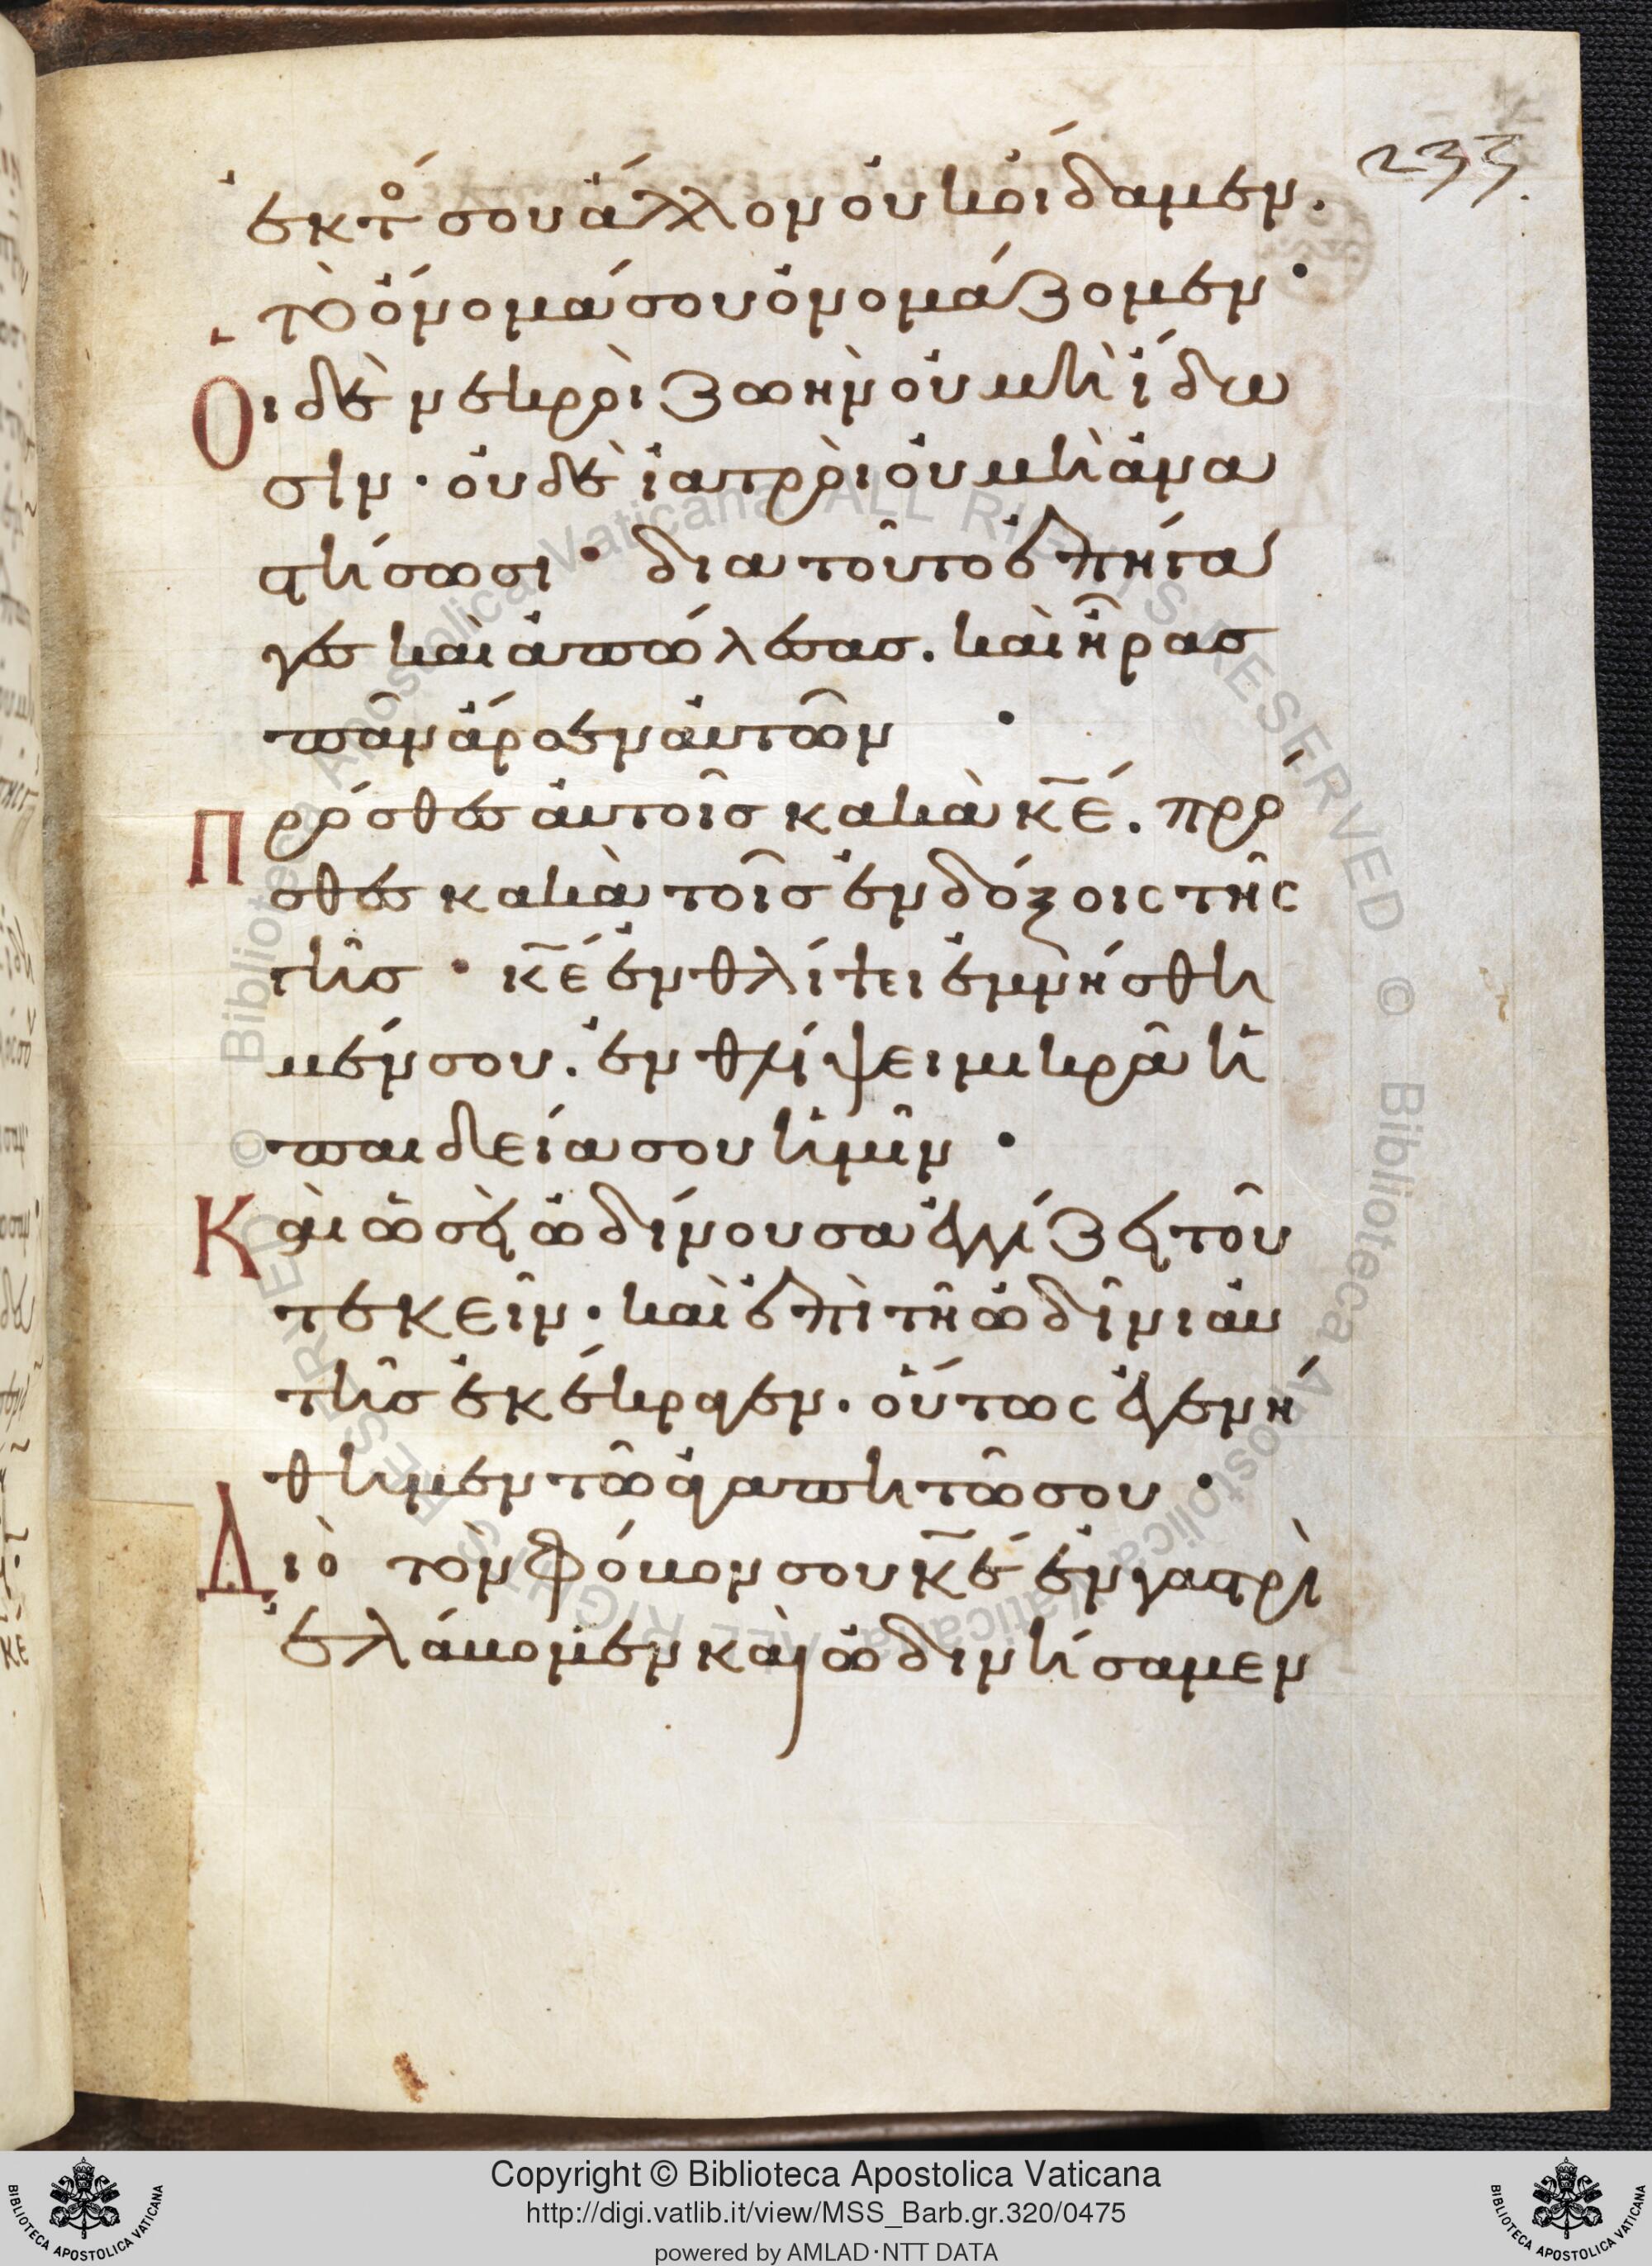 233.
ἐκτὸ σου ἄλλον οὐκ οἴδαμεν.
τὸ ὄνομά σου ὀνομάζομεν·
Οἱ δὲ νεκροὶ ζωὴν οὐ μὴ ἴδω
σιν· οὐδὲ ἰατροὶ οὐ μὴ ἀνα
στήσωσι· διατοῦτο ἐπήγα
γες καὶ ἀπώλεσας. καὶ ἦρας
πᾶν ἄρσεν αὐτῶν·
Πρόσθες αὐτοῖς κακὰ κ̅ε̅. πρό
σθες κακὰ τοῖς ἐνδόξοις τῆς
γῆς· κ̅ε̅ ἐν θλίψει ἐμνήσθη
μέν σου. ἐν θλίψει μικρᾶ ἡ
παιδεία σου ἡμῖν·
Καὶ ὡσεὶ ὠδίνουσα ἐγγίζει τοῦ
τεκεῖν· καὶ ἐπὶ τῆ ὠδῖνι αὐ
τῆς ἐκέκραξεν. οὕτως ἐγενή
θημεν τῶ ἀγαπητῶ σου·
Διὸ τὸν φόβον σου κ̅ε̅ ἐν γαστρὶ
ἐλάβομεν καὶ ὠδινήσαμεν
Copyright © Biblioteca Apostolica Vaticana
http://digi.vatlib.it/view/MSS_Barb.gr.320/0475
powered by AMLAD·NTT DATA
BIBLIOTECA APOSTOLICA VATICANA
BIBLIOTECA APOSTOLICA VATICANA
© Biblioteca Apostolica Vaticana ALL RIGHTS RESERVED © Biblioteca Apostolica Vaticana ALL RIGHTS RESERVED